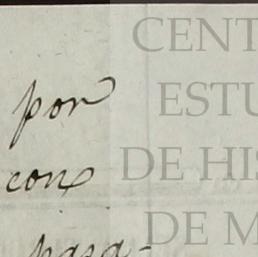 por
con
para-
CENT
ESTU
DE HIS
DE M